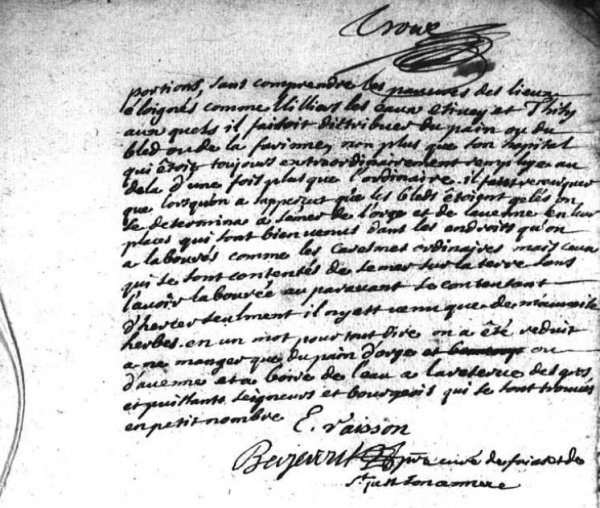 portions, sans comprendre les pauvres des lieux
éloignés comme Villiers les eaux etivey et Thisy
aux quels il faisoit distribuer du pain ou du
bled ou de la farinne, non plus que son hopital
qui étoit toujours extraordinairement remply et au
dela d'une fois plus que l'ordinaire. il faut remarquer
que lorsqu'on a apperçut que les bleds étoient gelés on
se determina a semer de l'orge et de l'avenne en leur
places qui sont bien venus dans les endroits qu'on
a labourés comme les caresmes ordinaires mais ceux
qui se sont contentés de semer sur la terre sans
l'avoir labourée au paravant se contentant
d'herser seulment il ny est venu que de mauvaise
herbes. en un mot pour tout dire on a été reduit
a ne manger que du pain d'orge et ou
d'avenne et a boire de l'eau a la reserve des gros
et puissants seigneurs et bourgeois qui se sont trouvés
en petit nombre
prêt curé de et de
St just son annexe